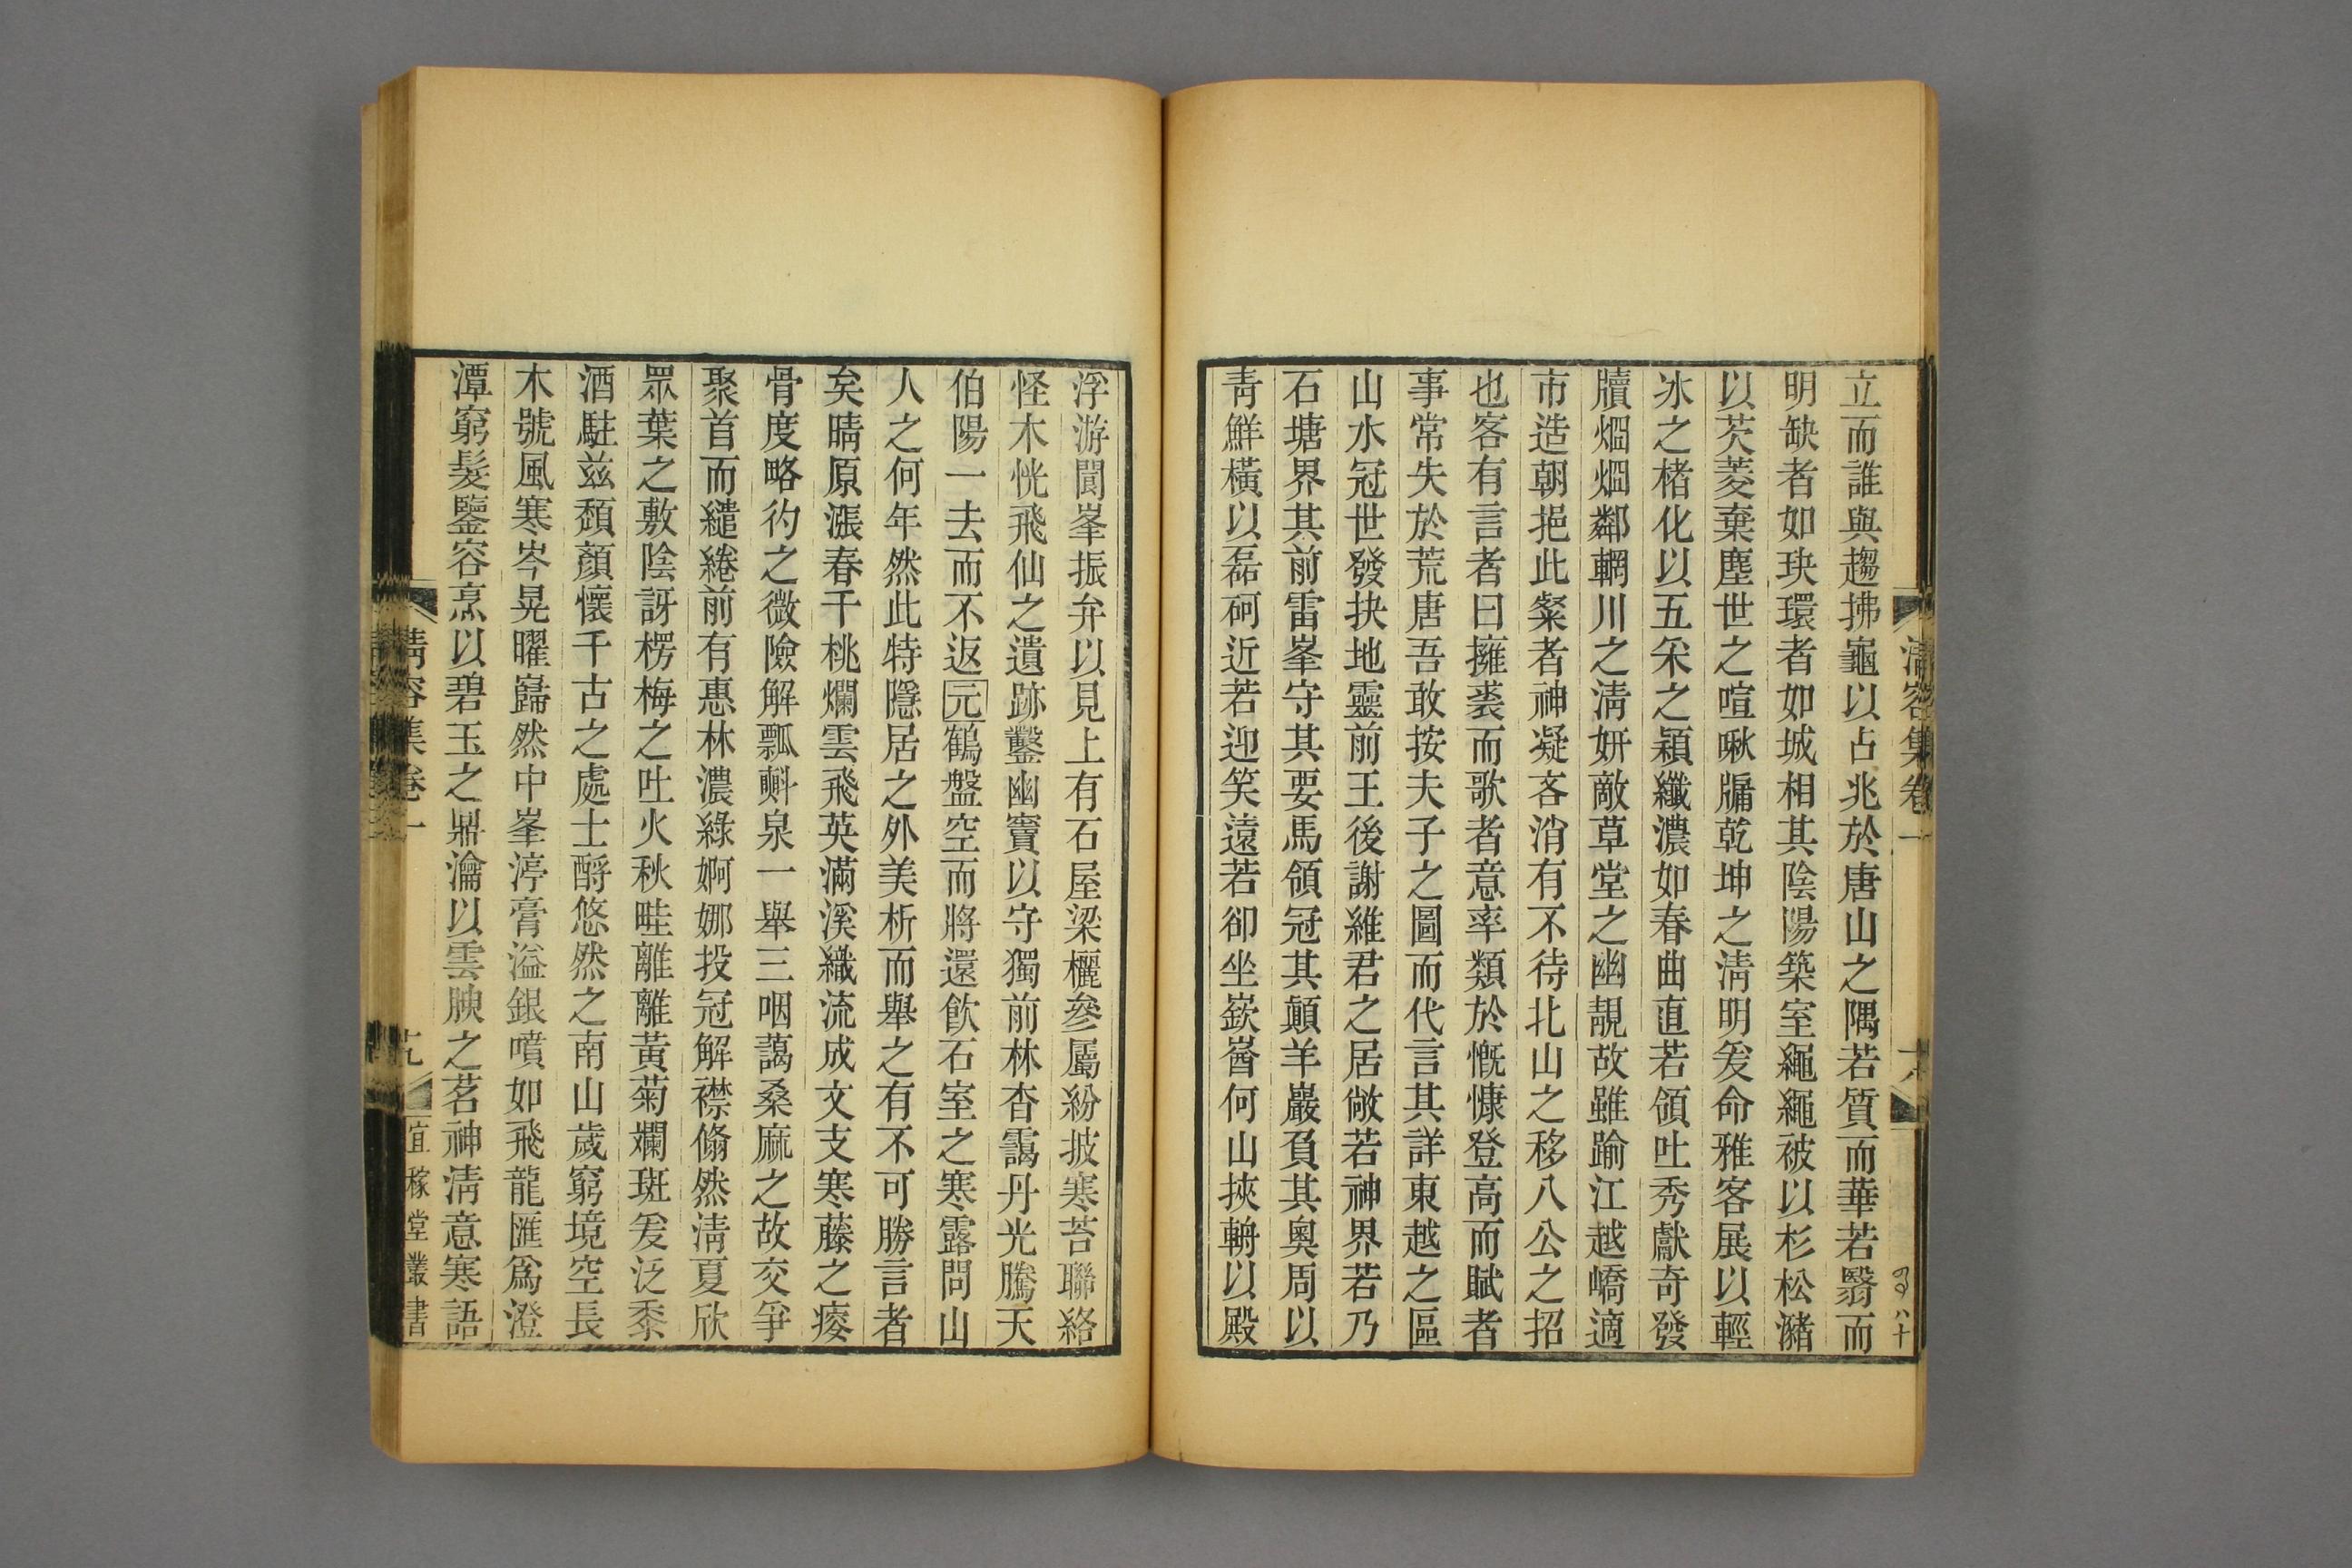 清容集卷一
十八
立而誰與趨拂龜以占兆於唐山之隅若質而華若翳而
明缺者如玦環者如城相其陰陽築室繩繩被以杉松瀦
以芡菱棄塵世之喧啾牖乾坤之淸明爰命雅客展以輕
冰之楮化以五采之穎纖濃如春曲直若領吐秀獻奇發
牘烟烟鄰輞川之淸妍敵草堂之幽靚故雖踰江越嶠適
市造朝挹此粲者神凝吝消有不待北山之移八公之招
也客有言者曰擁裘而歌者意率類於慨慷登高而賦者
事常失於荒唐吾敢按夫子之圖而代言其詳東越之區
山水冠世發抉地靈前王後謝維君之居敞若神界若乃
石塘界其前雷峯守其要馬領冠其顛羊巖負其奧周以
靑鮮橫以磊砢近若迎笑遠若卻坐嶔崟何山挾輈以殿
浮游閬峯振弁以見上有石屋梁欐參屬紛披寒苔聯絡
怪木恍飛仙之遺跡鑿幽竇以守獨前林杳靄丹光騰天
伯陽一去而不返元鶴盤空而將還飮石室之寒露問山
人之何年然此特隱居之外美析而舉之有不可勝言者
矣晴原漲春千桃爛雲飛英滿溪織流成文支寒藤之痿
骨度略彴之微險解瓢㪺泉一舉三咽藹桑麻之故交爭
聚首而繾綣前有惠林濃綠婀娜投冠解襟翛然淸夏欣
眾葉之敷陰訝楞梅之吐火秋畦離離黃菊斕斑爰泛黍
酒駐兹頹顏懷千古之處士酹悠然之南山歲窮境空長
木號風寒岑晃曜巋然中峯渟膏溢銀噴如飛龍匯爲澄
潭窮髮鑒容烹以碧玉之鼎瀹以雲腴之茗神淸意寒語
清容集卷一
十九
宜稼堂叢書